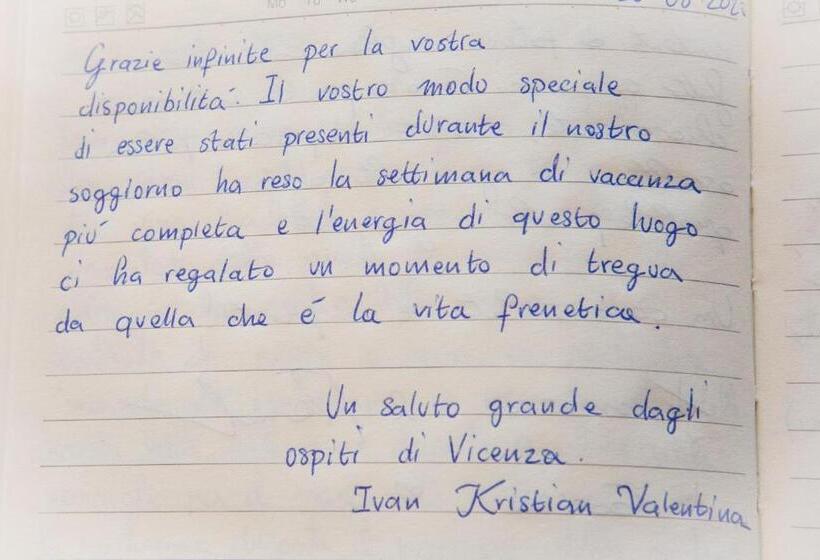 Grazie infinite per la vostra
disponibilità. Il vostro modo speciale
di essere stati presenti durante il nostro
soggiorno ha reso la settimana di vacanza
più completa e l'energia di questo luogo
ci ha regalato un momento di tregua
da quella che é la vita frenetica.
Un saluto grande dagli
ospiti di Vicenza.
Ivan Kristian Valentina